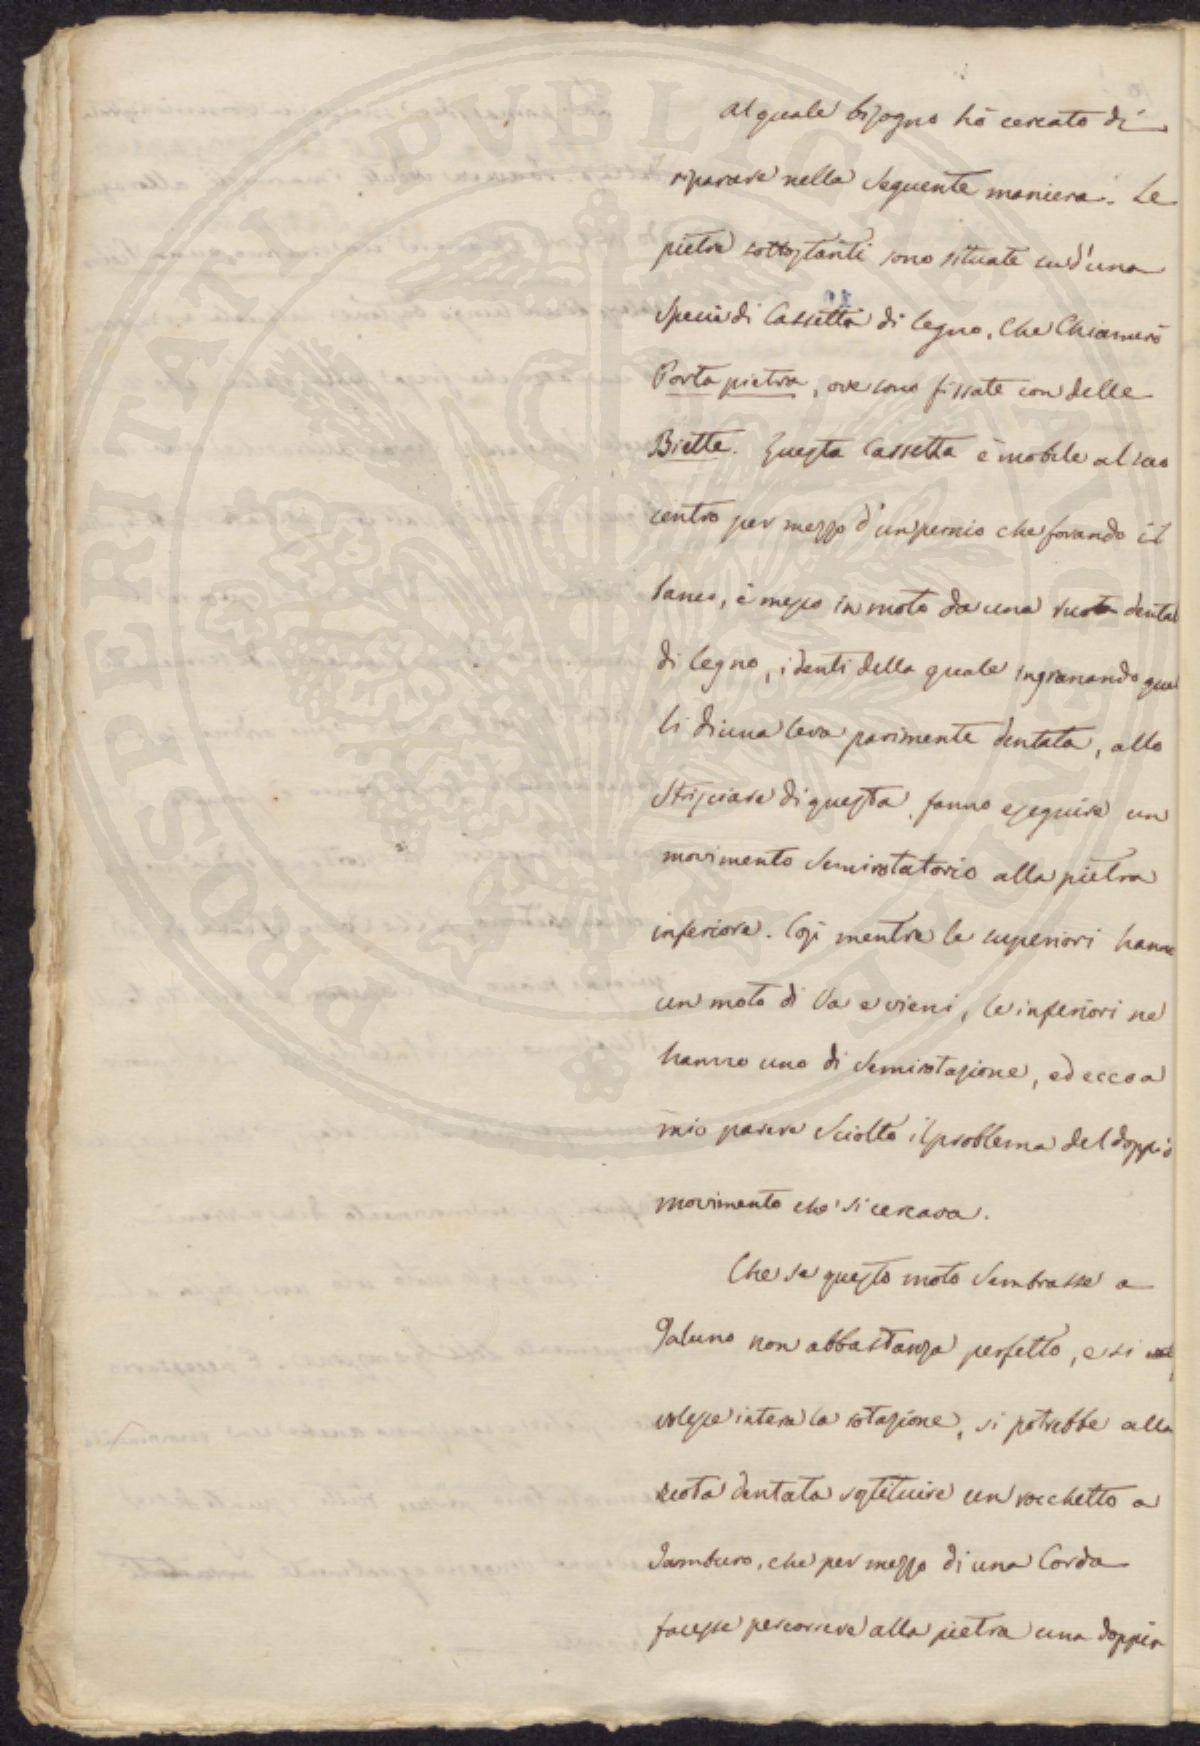 Al quale bisogno hò cercato di
riparare nella seguente maniera. Le
pietre sottostanti sono situate su d'una
Specie di Cassetta di legno, Che Chiamerò
Porta pietra, ove sono fissate con delle
Biette. Questa Cassetta è mobile al suo
centro per mezzo d'un pernio che forando il
banco, è messo in moto da una ruota dentat
di legno, i denti della quale ingranando quel
li di una leva parimente dentata, allo
Strisciare di questa, fanno eseguire un
movimento Semirotatorio alla pietra
inferiore. Così mentre le superiori hanno
un moto di Va e vieni, le inferiori ne
hanno uno di Semirotazione, ed ecco a
mio parere Sciolto il problema del doppio
movimento che si cercava.
Che se questo moto Sembrasse a
Taluno non abbastanza perfetto, e si
volesse intera la rotazione, si potrebbe alla
ruota dentata sostituire un rocchetto a
Tamburo, che per mezzo di una Corda
facesse percorrere alla pietra una doppia
PROSPERITATI PVBLICAE AVGENDAE